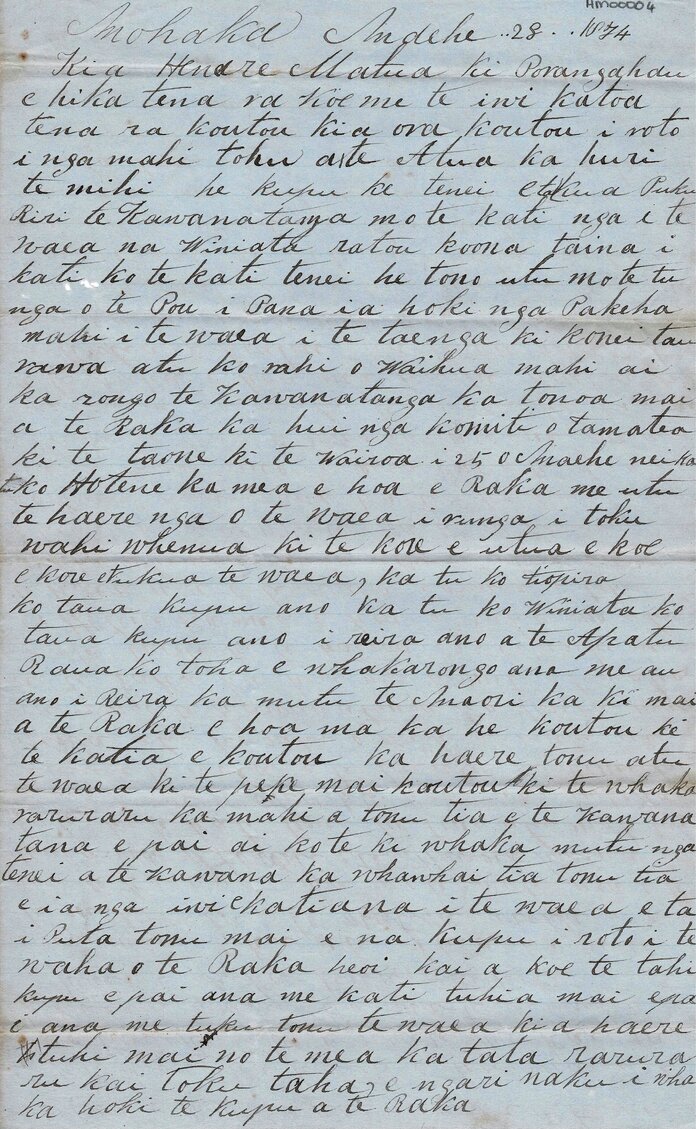 HM00004
Mohaka Maehe .. 28 .. 1874
Kia Henare Matua ki Porangahau
e hika tena ra koe me te iwi katoa
tena ra koutou kia ora koutou i roto
i nga mahi tohu a te Atua ka huri
te mihi he kupu ke tenei Puku
Riri te Kawanatana mo te kati nga i te
waea na Winiata ratou ko ona taina i
kati ko te kati tenei he tono utu mo te tu
nga o te Pou i Pana ia hoki nga Pakeha
mahi i te waea i te taenga ki konei tau
rawa atu ko rahi o Waihua mahi ai
ka rongo te Kawanatanga ka tonoa mai
a te Raka ka hui nga komiti o tamatea
ki te taone ki te Wairoa i 25 o Maehe nei ka
tu ko Hotene ka mea e hoa e Raka me utu
te haere nga o te waea i runga i toku
wahi whenua ki te kore e utua e koe
e kore e tukua te waea, ka tu ko tiopira
ko taua kupu ano ka tu ko Winiata ko
taua kupu ano i reira ano a te Apatu
Raua ko toha e whakarongo ana me au
ano i Reira ka mutu te Maori ka ki mai
a te Raka e hoa ma ka he koutou ki
te katia e koutou ka haere tonu atu
te waea ki te peke mai koutou ki te whaka
raruraru ka mahi a tonu tia e te Kawana
tana e pai ai ko te ki whaka mutu nga
tenei a te Kawana ka whawhai tia tonu tia
e ia nga iwi e katiana i te waea e ta
i Puta tonu mai e na kupu i roto i te
waha o te Raka heoi kai a koe te tahi
kupu e pai ana me kati tuhia mai e pa
i ana me tuku tonu te waea kia haere
tuhi mai no te mea ka tata rarura
ru kai toku taha, e ngari naku i wha
ka hoki te kupu a te Raka